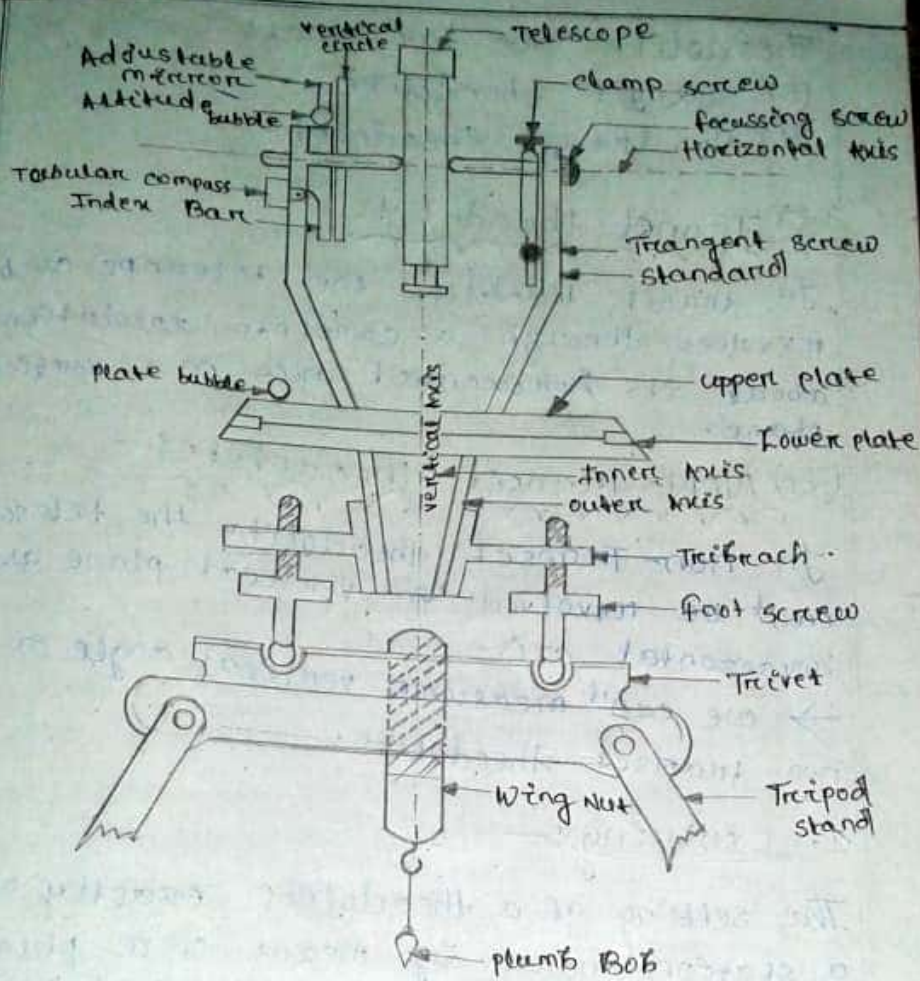 vertical
circle
Telescope
Addustable
mirrror
Altitude
bubble
clamp screw
focussing screw
Horizontal Axis
Toubular compass
Index Bar
Trangent screw
standard
plate bubble
upper plate
vertical Axis
Lower plate
Inner Axis
outer Axis
Tribrach
Foot screw
Trivet
Wing Nut
Tripod
stand
plumb Bob